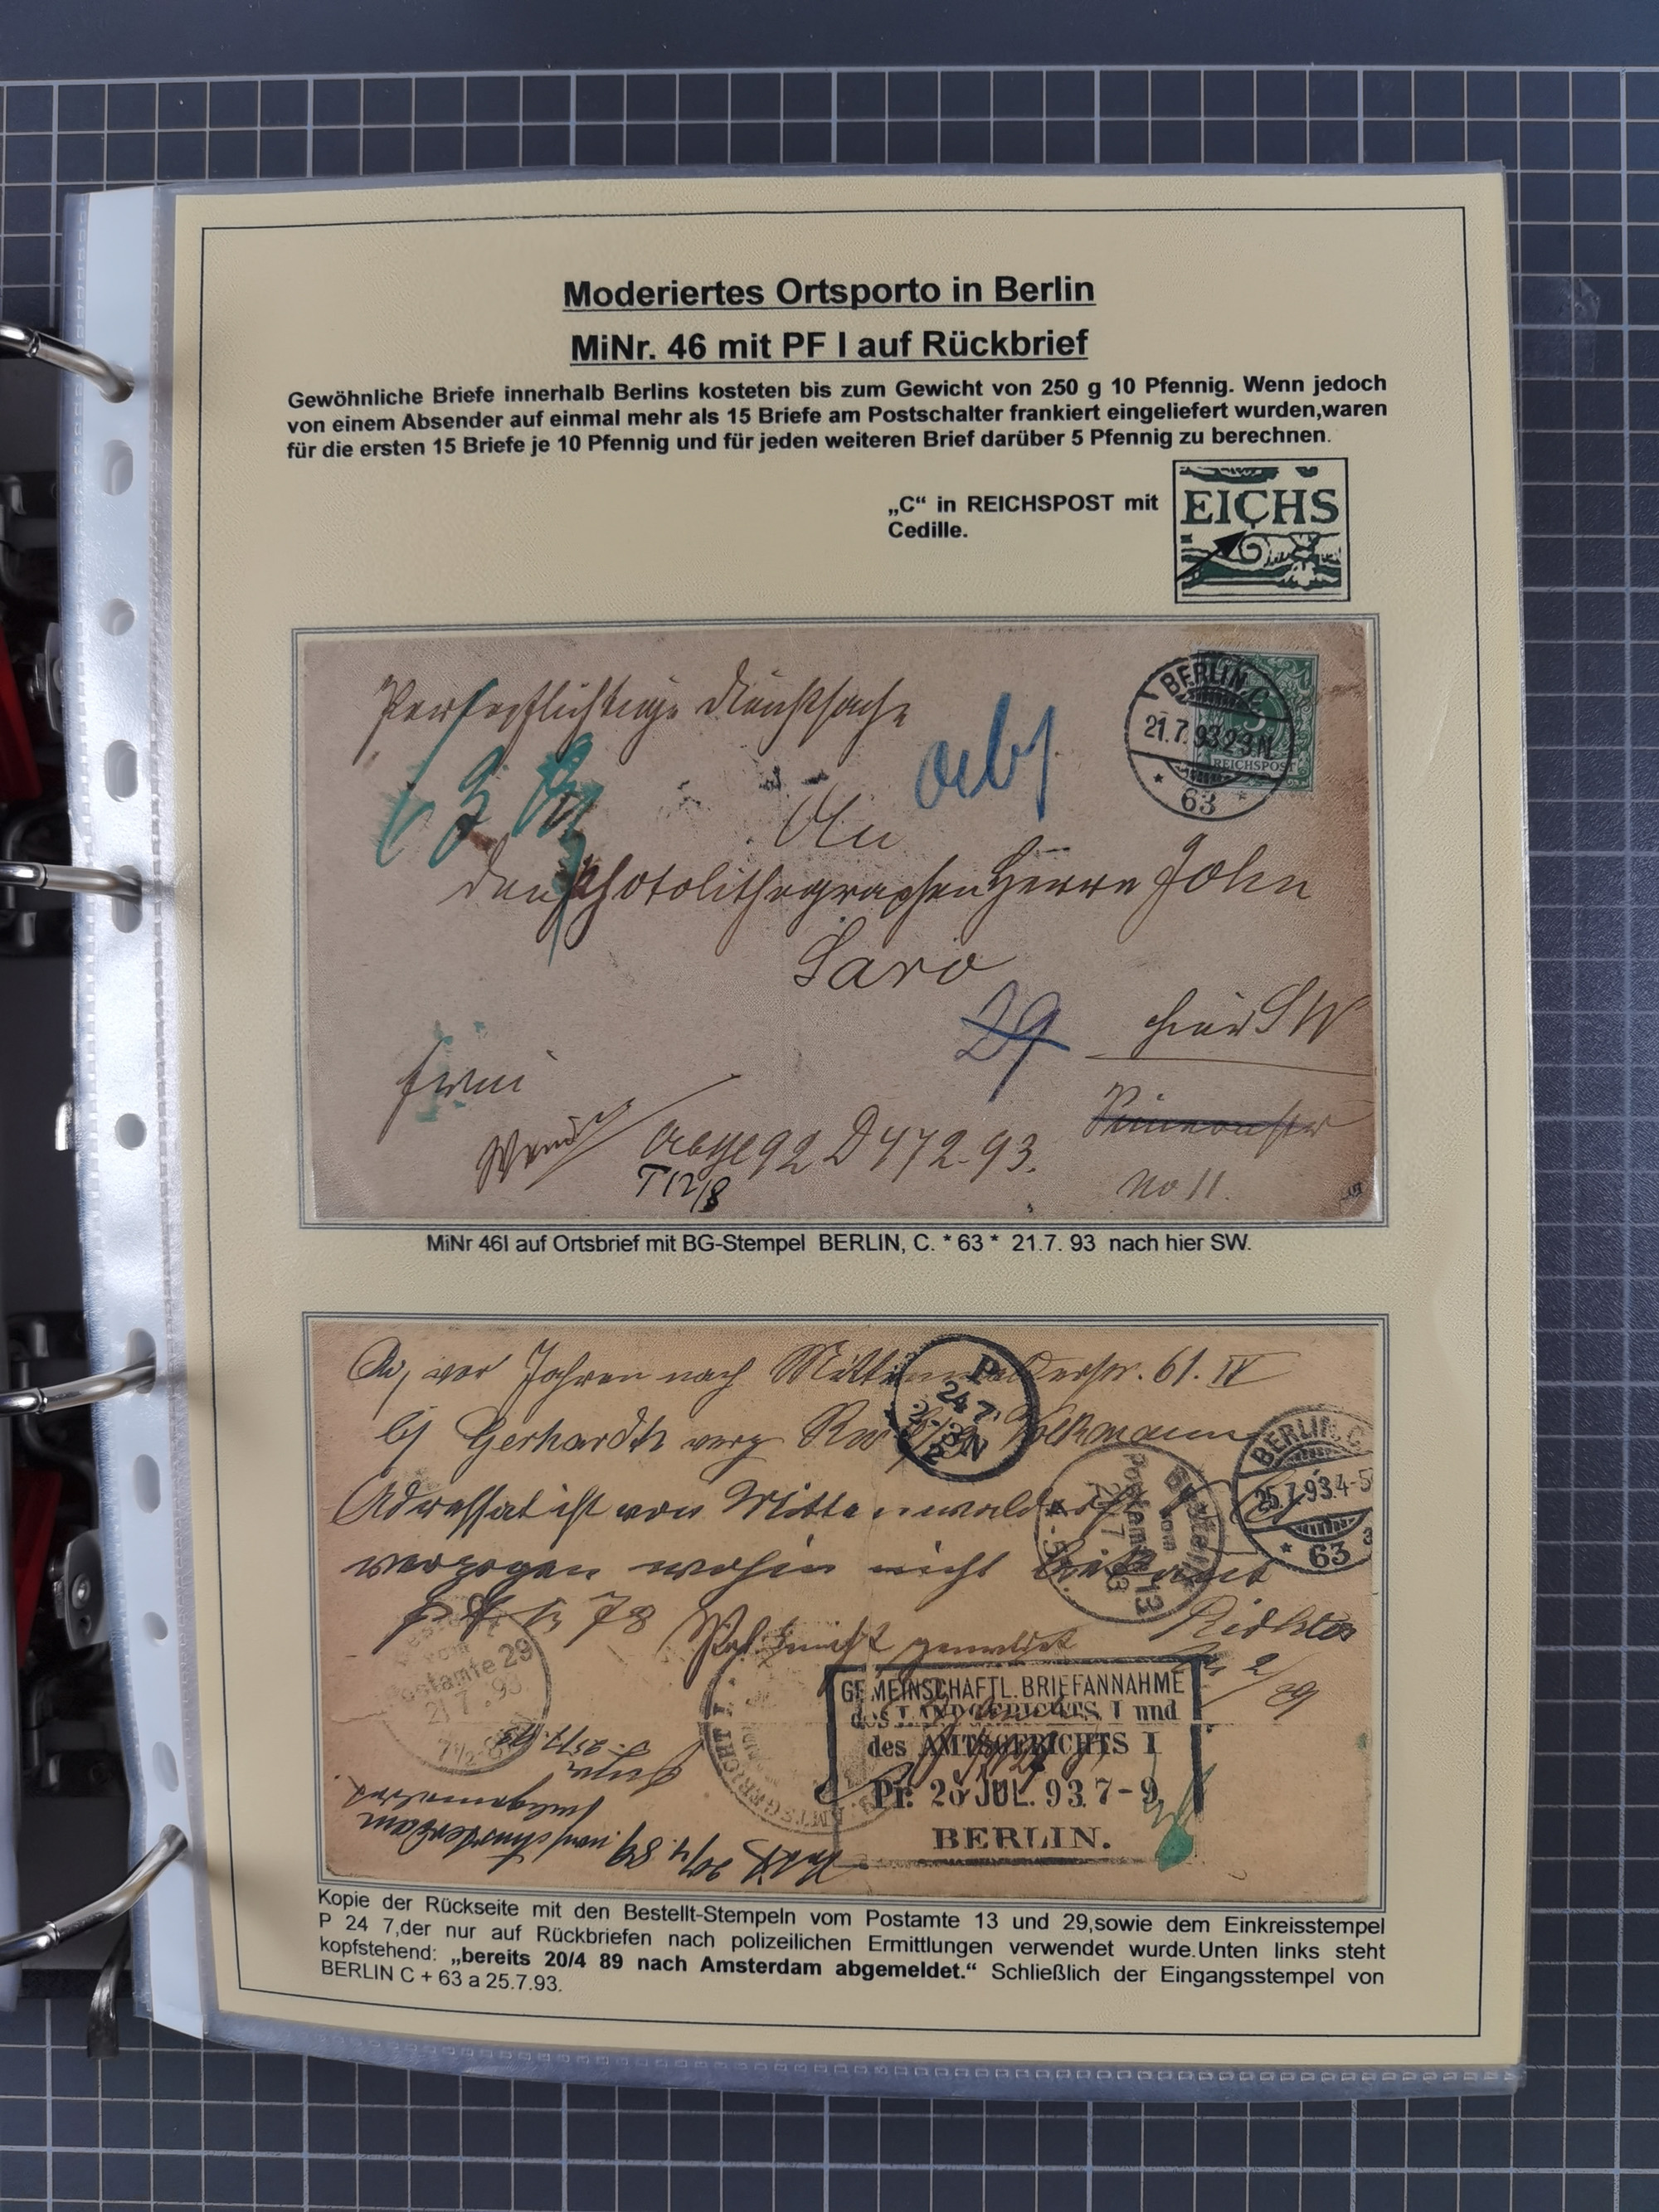 Moderiertes Ortsporto in Berlin
MiNr. 46 mit PF I auf Rückbrief
Gewöhnliche Briefe innerhalb Berlins kosteten bis zum Gewicht von 250 g 10 Pfennig. Wenn jedoch
von einem Absender auf einmal mehr als 15 Briefe am Postschalter frankiert eingeliefert wurden,waren
für die ersten 15 Briefe je 10 Pfennig und für jeden weiteren Brief darüber 5 Pfennig zu berechnen.
„C“ in REICHSPOST mit
Cedille.
EIÇHS
Portopflichtige Dienstsache
BERLIN C
21.7.93 2-3N
* 63 *
REICHSPOST
An
den Photolithographen Herrn John
Saro
29
hier SW
frei
92 D 472.93.
T 12/8
No 11.
MiNr 46I auf Ortsbrief mit BG-Stempel BERLIN, C. * 63 * 21.7. 93 nach hier SW.
vor Jahren nach Mittenwalderstr. 61. IV
b/ Gerhardt verz
Volkmann
P
24 7.
2-3N
BERLIN C
25.7.93.4-5
* 63
Adressat ist von Mittenwalderstr
verzogen wohin nicht bekannt
Bestellt
vom
Postamte 13
78
gemeldet
Richter
Postamte 29
21 7. 93
7½-8
GEMEINSCHAFTL. BRIEFANNAHME
des LANDGERICHTS I und
des AMTSGERICHTS I
Pr. 26 JUL. 93. 7-9
BERLIN.
AMTSGERICHT I
20/4 89 nach Amsterdam
Kopie der Rückseite mit den Bestellt-Stempeln vom Postamte 13 und 29,sowie dem Einkreisstempel
P 24 7,der nur auf Rückbriefen nach polizeilichen Ermittlungen verwendet wurde.Unten links steht
kopfstehend: „bereits 20/4 89 nach Amsterdam abgemeldet.“ Schließlich der Eingangsstempel von
BERLIN C + 63 a 25.7.93.